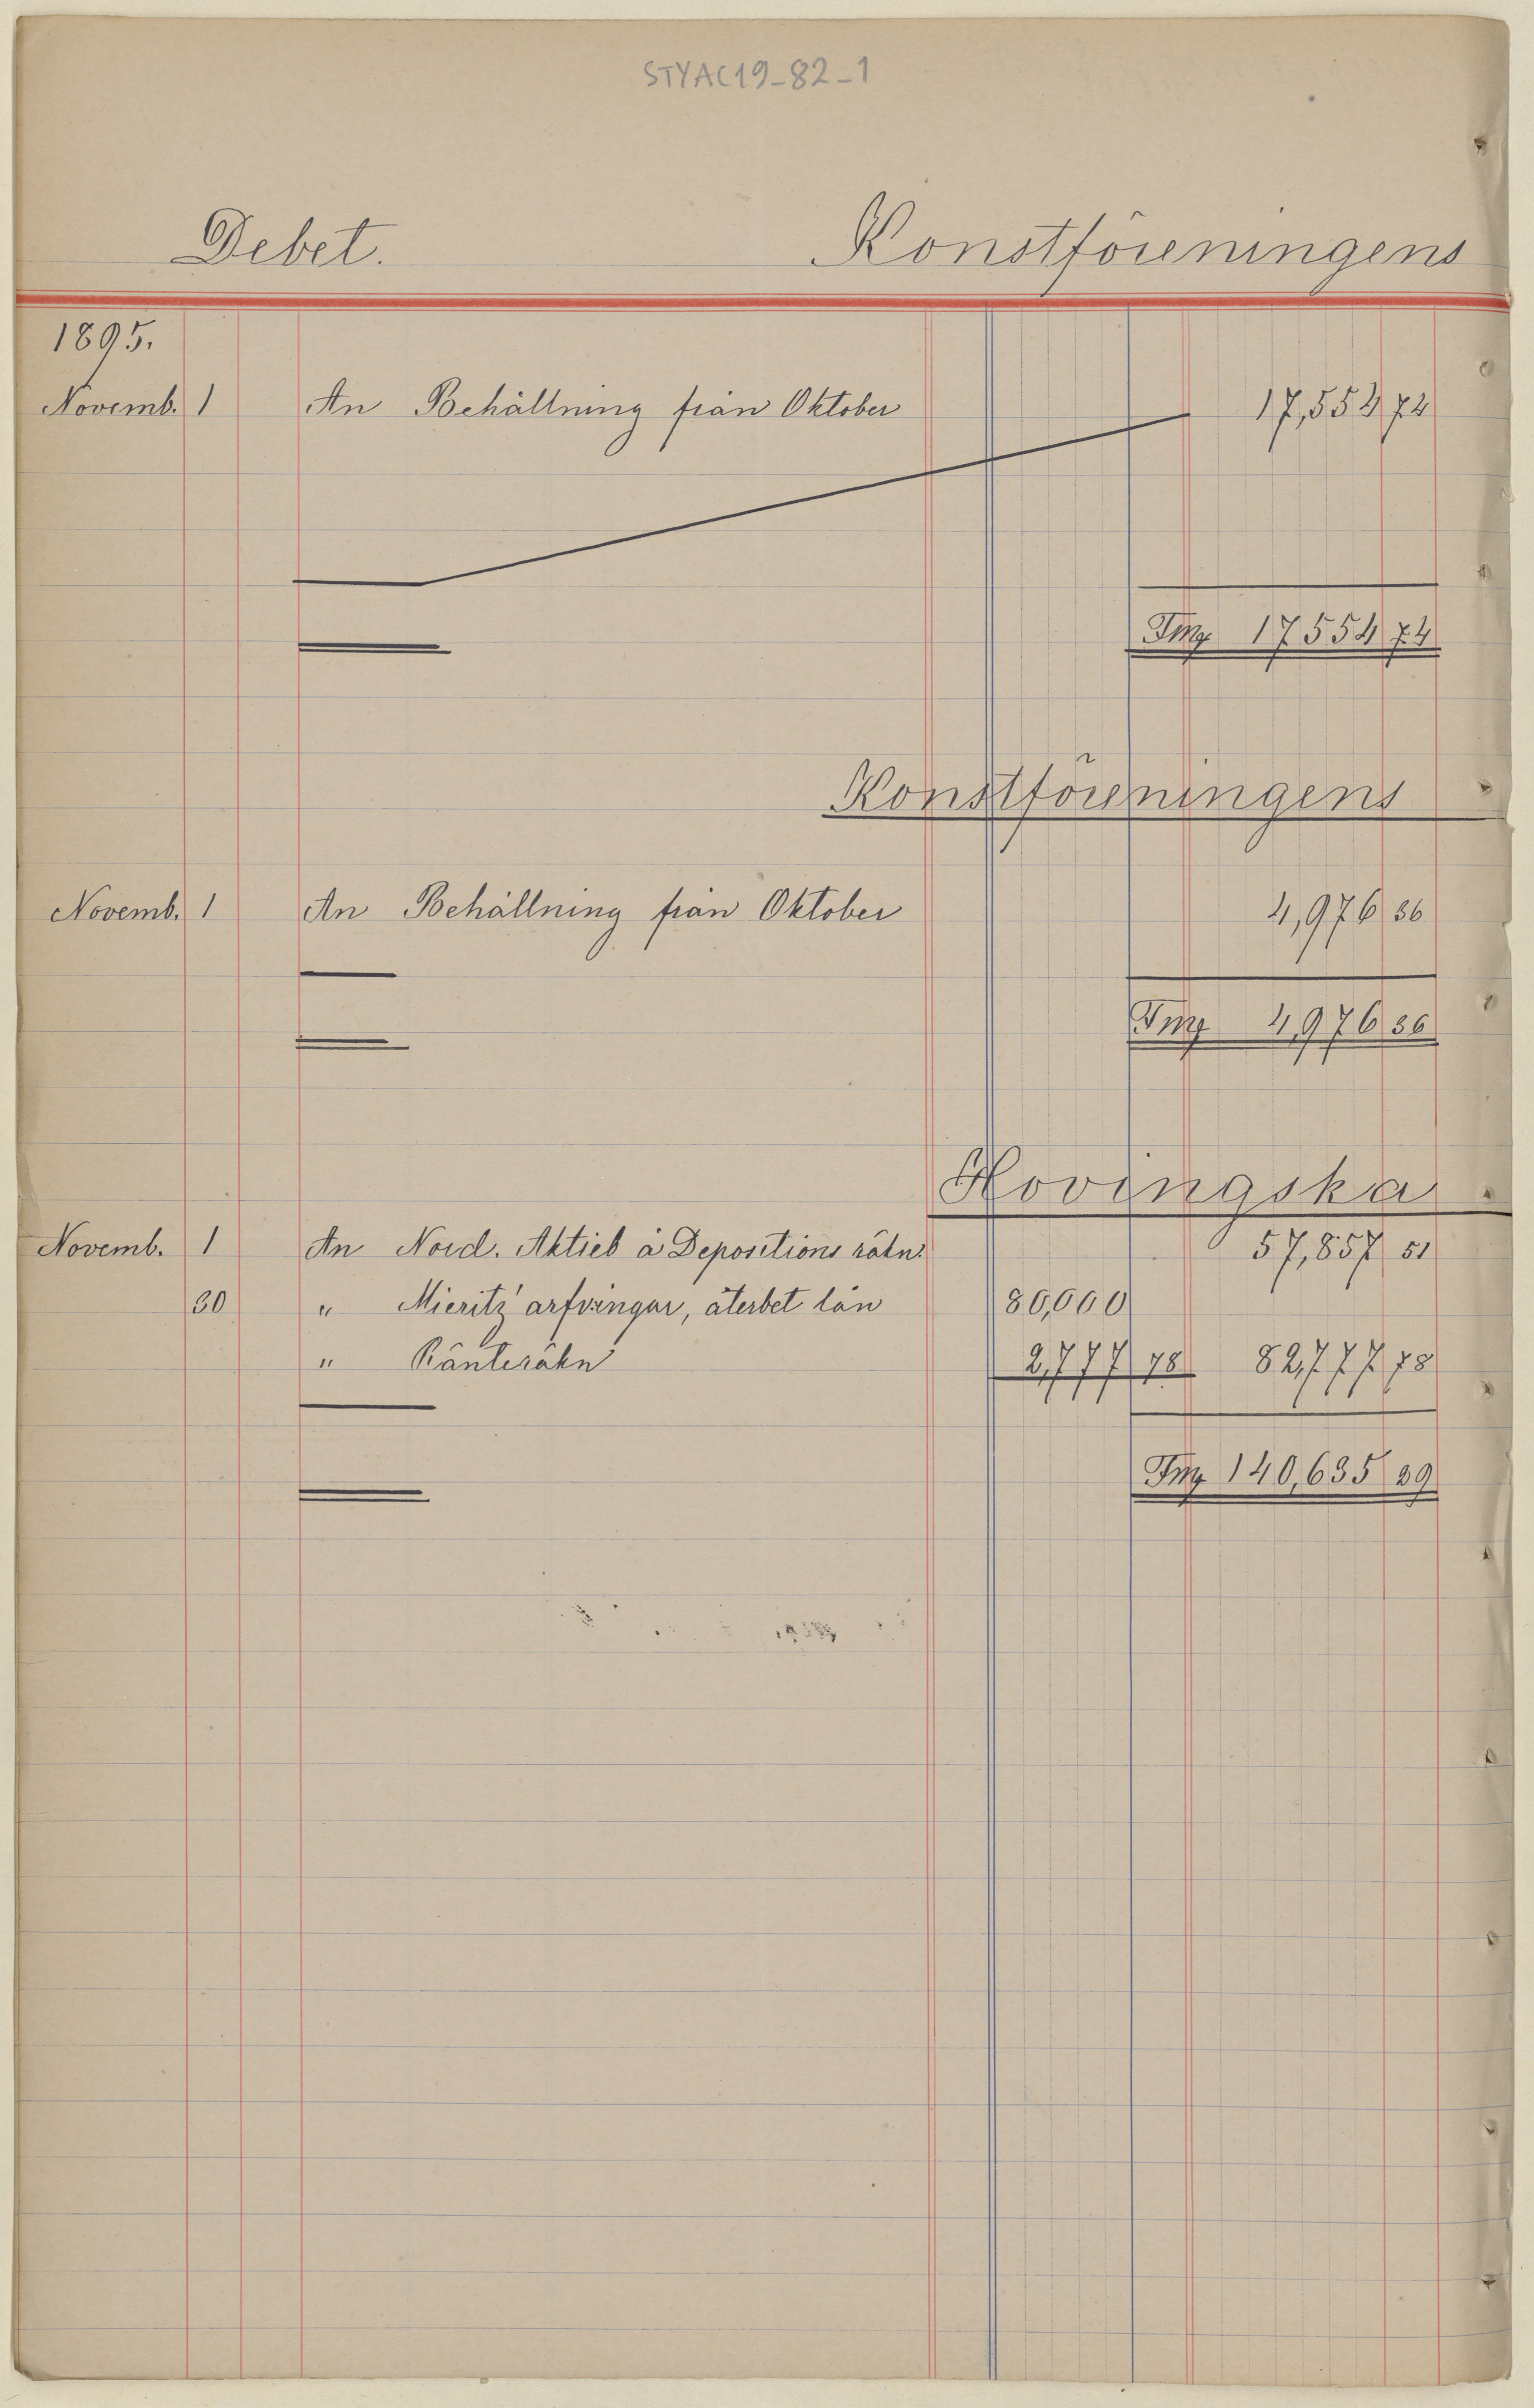 STYAC19_82_1
Debet. Konstföreningens
1895.
Novemb. 1 An Behållning från Oktober 17,554 74
Fmg 17554 74
Konstföreningens
Novemb. 1 An Behållning från Oktober 4,976 36
Fmg 4,976 36
Hovingska
Novemb. 1 An Nord. Aktieb å Depositions räkn: 57,857 51
30 " Mieritz' arfvingar, återbet lån 80,000
" Ränteräkn 2,777 78 82,777 78
Fmg 140,635 29